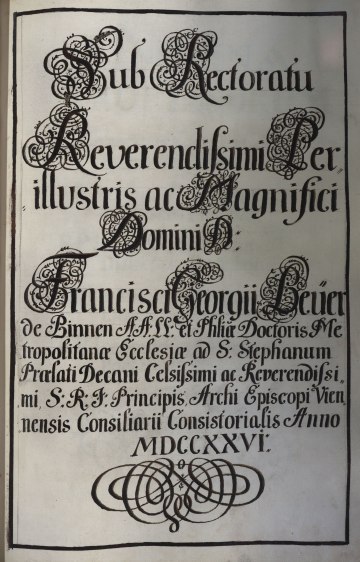 Sub Rectoratu
Reverendissimi Per=
illustris ac Magnifici
Domini D:
Francisci Georgii Beüer
de Binnen AA. LL. et Phliæ Doctoris Me=
tropolitanæ Ecclesiæ ad S: Stephanum
Prælati Decani Celsissimi ac Reverendissi=
mi, S: R: I: Principis, Archi Episcopi Vien=
nensis Consiliarii Consistorialis Anno
MDCCXXVI: